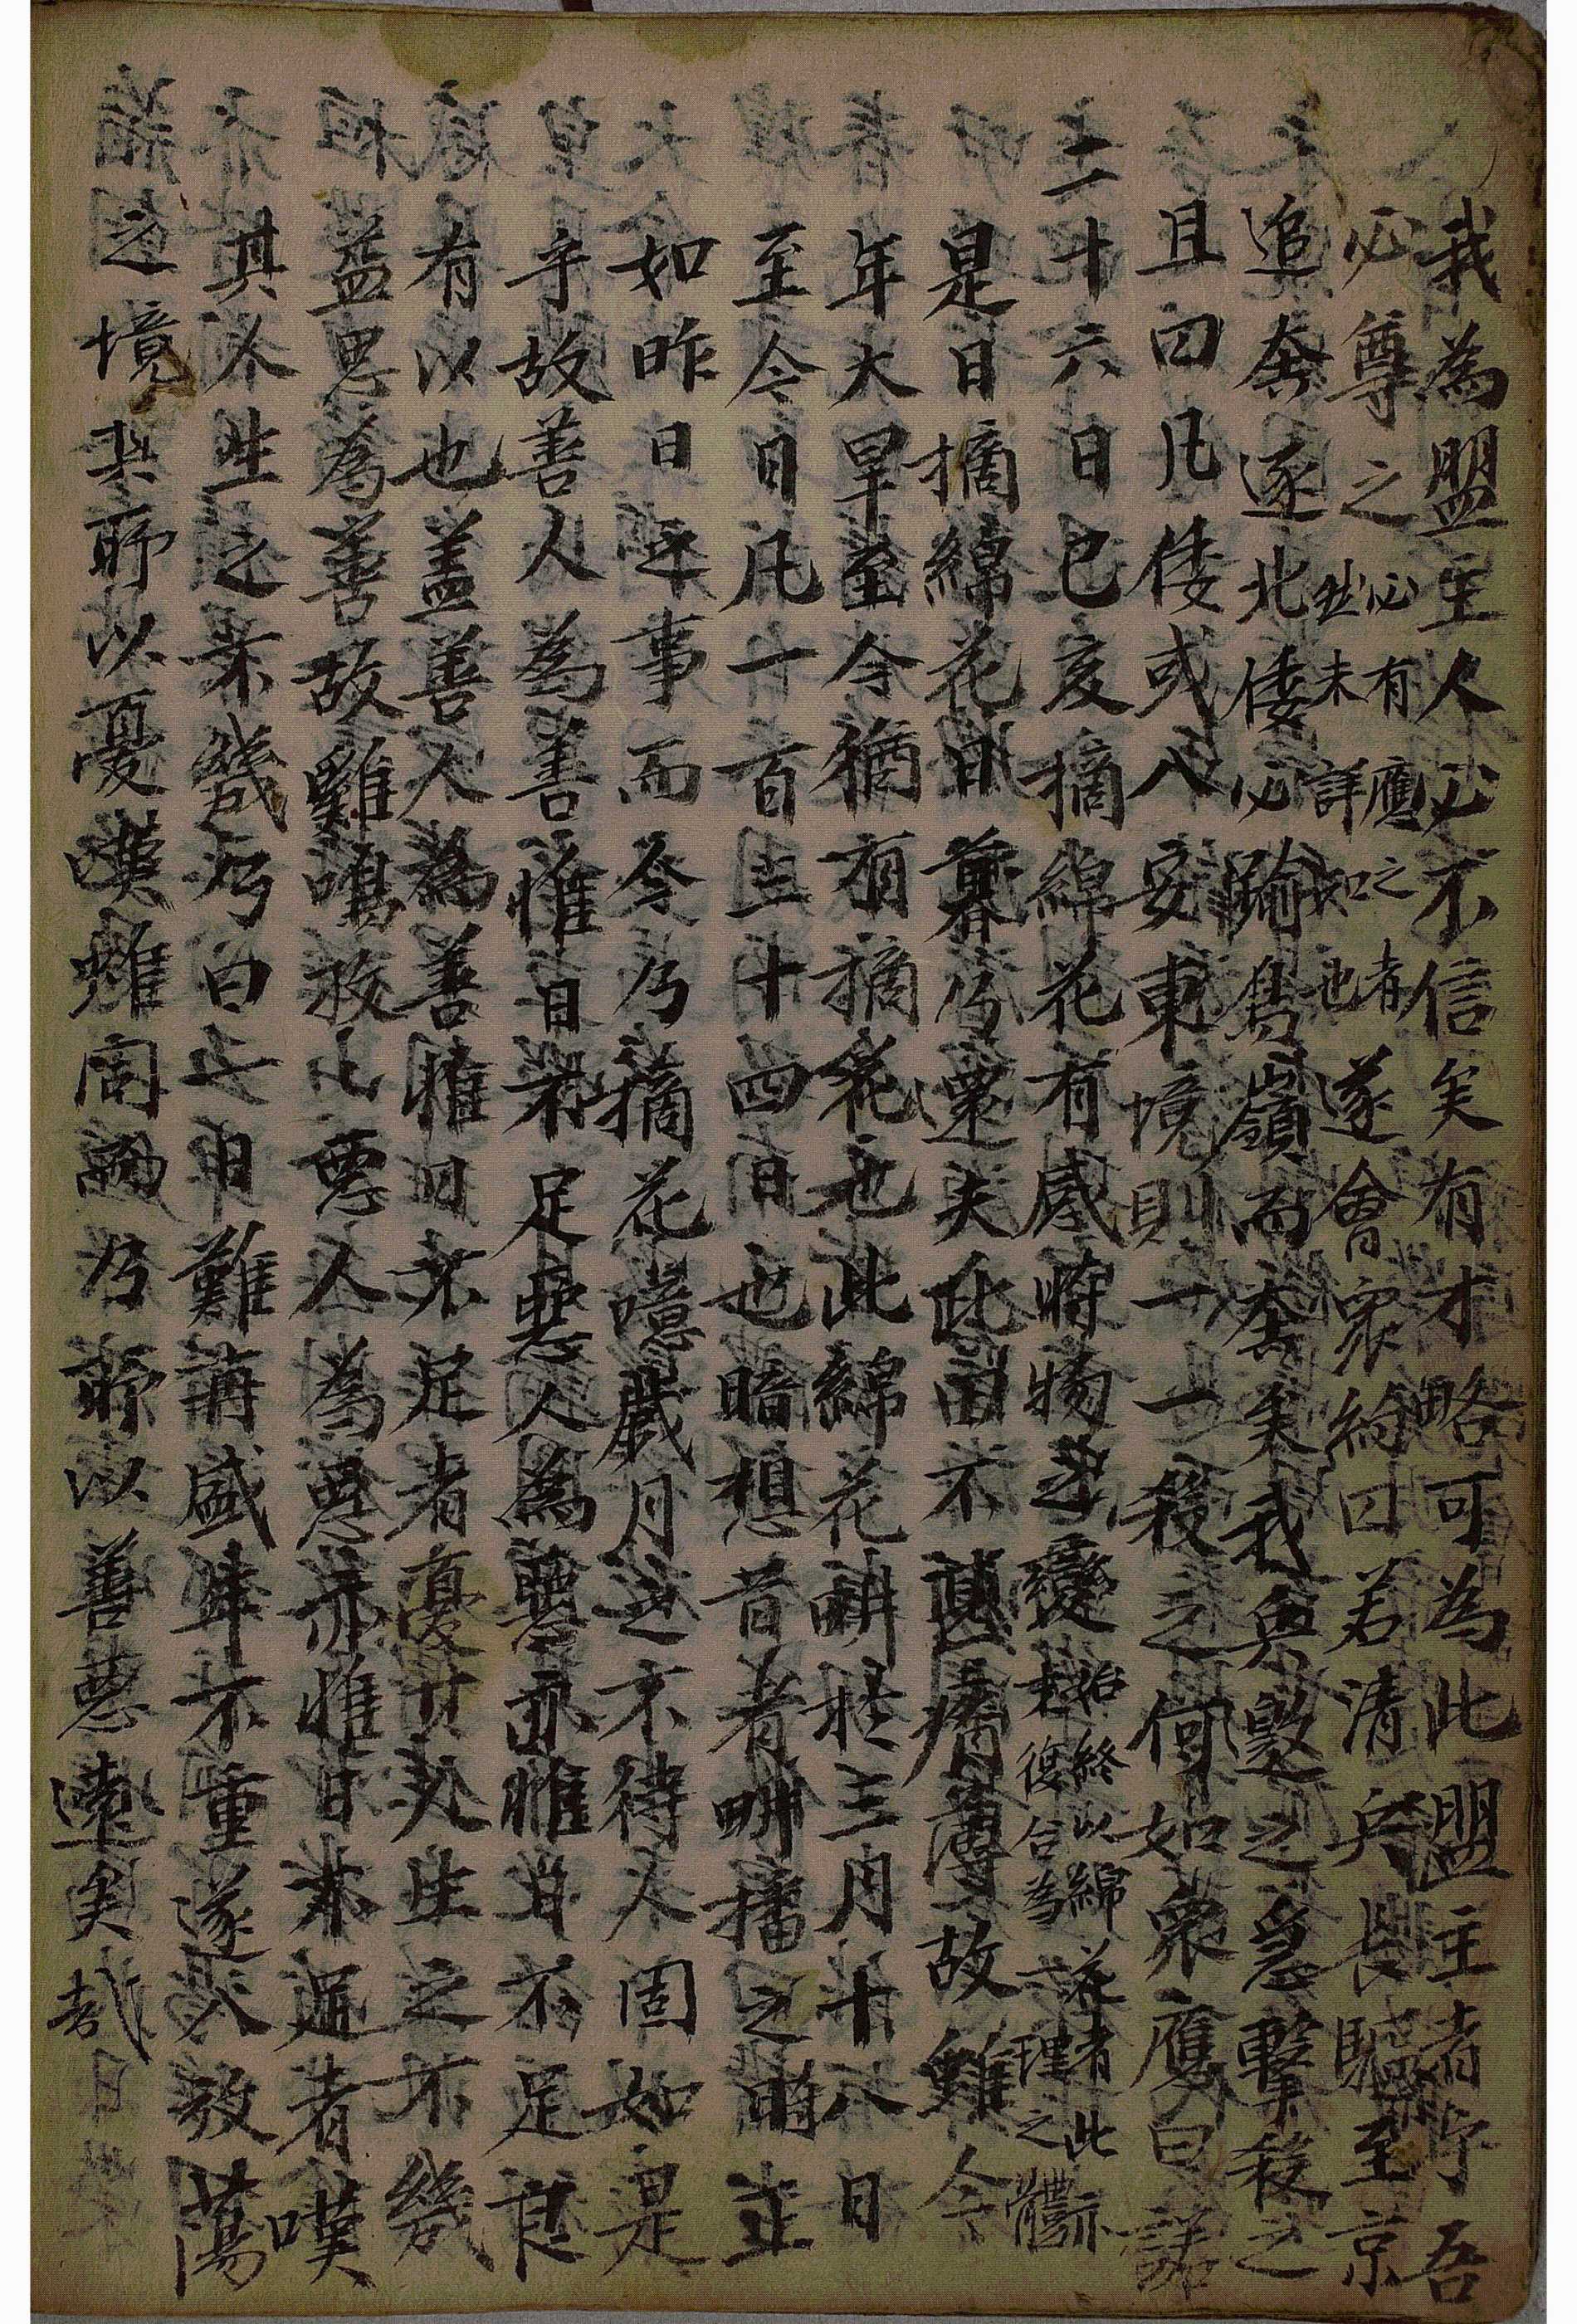 我為盟主人必不信矣有才略可為此盟主者乎吾
必尊之必有應之者然未詳如也遂會眾紿曰若清兵長驅至京
追奔逐北倭必踰鳥嶺而奔矣我與毀之急擊殺之
且曰凡倭或入安東境則一一殺之何如眾應曰諾
二十六日已亥摘綿花有感時物屯變始終以綿花者此亦未復合為一理之體
是日摘綿花日暮乃還夫此田不甚瘠薄故雖今
年大旱至今猶有摘花也此綿花耕於三月十八日
至今日凡一百三十四日也暗想昔者耕播之時正
如昨日之事而今乃摘花噫歲月之不待人固如是
乎故善人為善惟日不足惡人為惡亦惟日不足良
有以也盖善人為善惟日不足者憂其人生之不幾
益思為善故雞鳴孜孜惡人為惡亦惟日不足者嘆
其人生之不幾乃曰此日難再盛年不重遂入放蕩
之境其所以憂嘆雖同而乃所以善惡遠矣哉